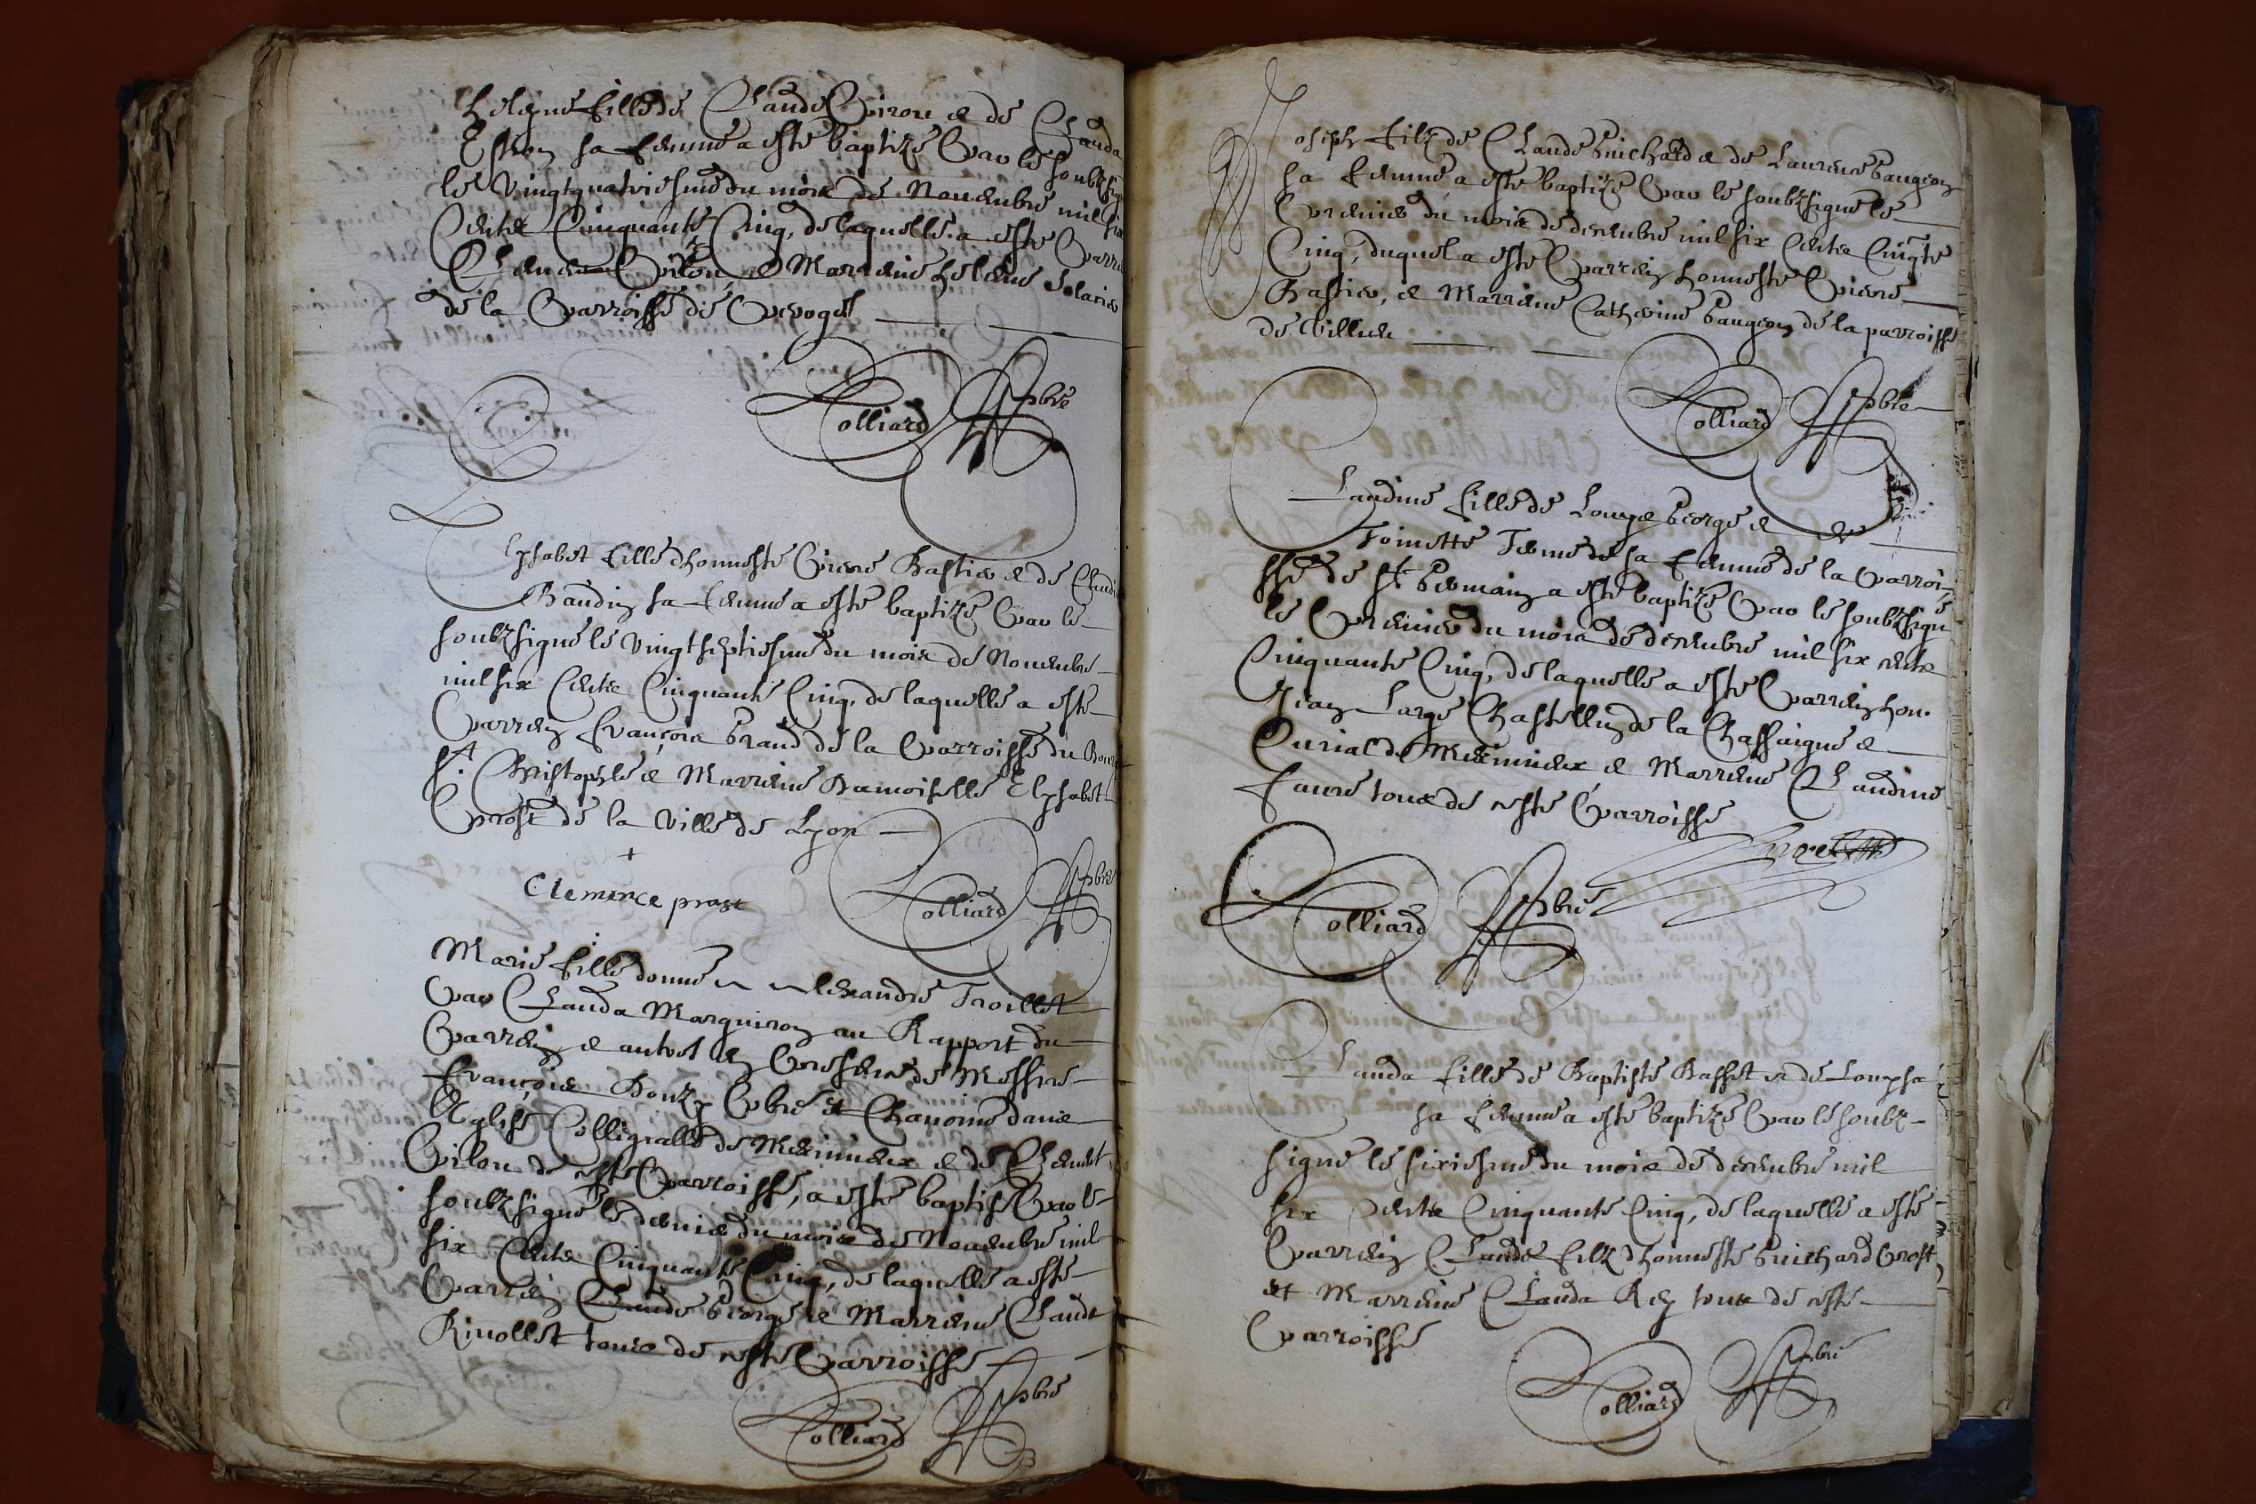 Heleyne fille de Claude Piron & de Clauda
Esthon sa femme a esté baptizé par le soubzsigné
le vingtquatriesme du mois de Novembre mil six
Cents Cinquante Cinq, de laquelle a esté Parrein
Clement Pilon, & Marreine Helene Solarier
de la Parroisse de Chevoges
Colliard pbre
Elysabet fille d'honneste Pierre Bastier & de Claudine
Baudin sa femme a esté baptizé par le
soubzsigné le vingtseptiesme du mois de Novembre
mil six Cents Cinquante Cinq, de laquelle a esté
Parrein François Braud de la Parroisse du Bourg
St. Christophle & Marreine Damoiselle Elysabet
Prost de la ville de Lyon
Clemence prost
Colliard pbre
Marie fille donnée a Alexandre Troillet
par Clauda Marguiron au Rapport du
Parrein & autres en presence de Messire
François Bouzy pbre et Chanoine dans
l'Eglise Collegialle de Meximieux & de Clement
Pilon de ceste Parroisse, a esté baptisé par le
soubzsigné le dernier du mois de Novembre mil
six Cents Cinquante Cinq, de laquelle a esté
Parrein Claude George & Marreine Claude
Rivollet tous de ceste Parroisse
Colliard pbre
Joseph filz de Claude Guichard & de Laurence Baugeon
sa femme a esté baptizé par le soubzsigné le
Premier du mois de decembre mil six Cents Cinqte
Cinq, duquel a esté Parrein honneste Pierre
Bastier, & Marreine Catherine Baugeon de la parroisse
de Villieu
Colliard pbre
Claudine fille de Louys George & de
Toinette sa femme de la Parroi-
sse de St Germain a esté baptizé par le soubzsigné
le Premier du mois de decembre mil six cents
Cinquante Cinq, de laquelle a esté Parrein hon.
Jean Large Chastellin de la Chassaigne &
Curial de Meximieux & Marreine Claudine
Favre tous de ceste Parroisse
Colliard pbre
Clauda fille de Baptiste Basset & de Loupsa
sa femme a esté baptizé par le soubz-
signé le sixiesme du mois de decembre mil
six Cents Cinquante Cinq, de laquelle a esté
Parrein Claude filz d'honneste Guichard Prost
et Marreine Clauda Rey tous de ceste
Parroisse
Colliard pbre